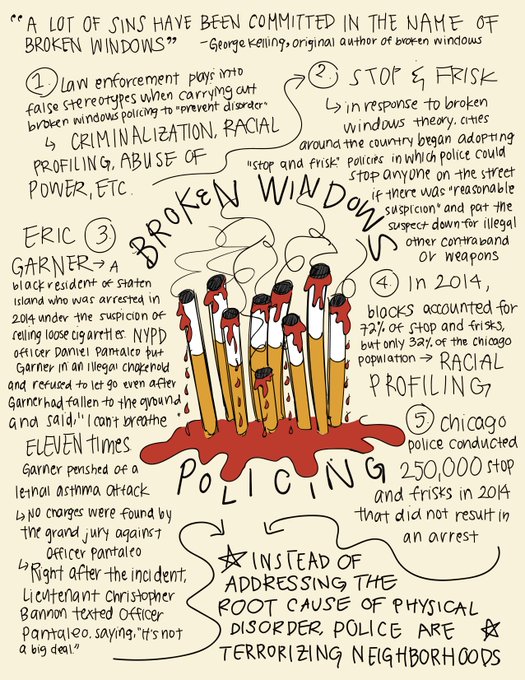 "A LOT OF SINS HAVE BEEN COMMITTED IN THE NAME OF
BROKEN WINDOWS" - George Kelling, original author of broken windows
1. Law enforcement plays into
false stereotypes when carrying out
broken windows policing to "prevent disorder"
↳ CRIMINALIZATION, RACIAL
PROFILING, ABUSE OF
POWER, ETC.
2. STOP & FRISK
↳ in response to broken
windows theory, cities
around the country began adopting
"stop and frisk" policies in which police could
stop anyone on the street
if there was "reasonable
suspicion" and pat the
suspect down for illegal
other contraband
or weapons
BROKEN WINDOWS
POLICING
ERIC 3.
GARNER → A
black resident of Staten
Island who was arrested in
2014 under the suspicion of
selling loose cigarettes. NYPD
officer Daniel Pantaleo put
Garner in an illegal chokehold
and refused to let go even after
Garner had fallen to the ground
and said, "I can't breathe"
ELEVEN times
Garner perished of a
lethal asthma attack
↳ No charges were found by
the grand jury against
officer Pantaleo
↳ Right after the incident,
Lieutenant Christopher
Bannon texted Officer
Pantaleo, saying, "it's not
a big deal."
4. In 2014,
blacks accounted for
72% of stop and frisks,
but only 32% of the chicago
population → RACIAL
PROFILING
5. Chicago
police conducted
250,000 stop
and frisks in 2014
that did not result in
an arrest
☆ INSTEAD OF
ADDRESSING THE
ROOT CAUSE OF PHYSICAL
DISORDER, POLICE ARE ☆
TERRORIZING NEIGHBORHOODS